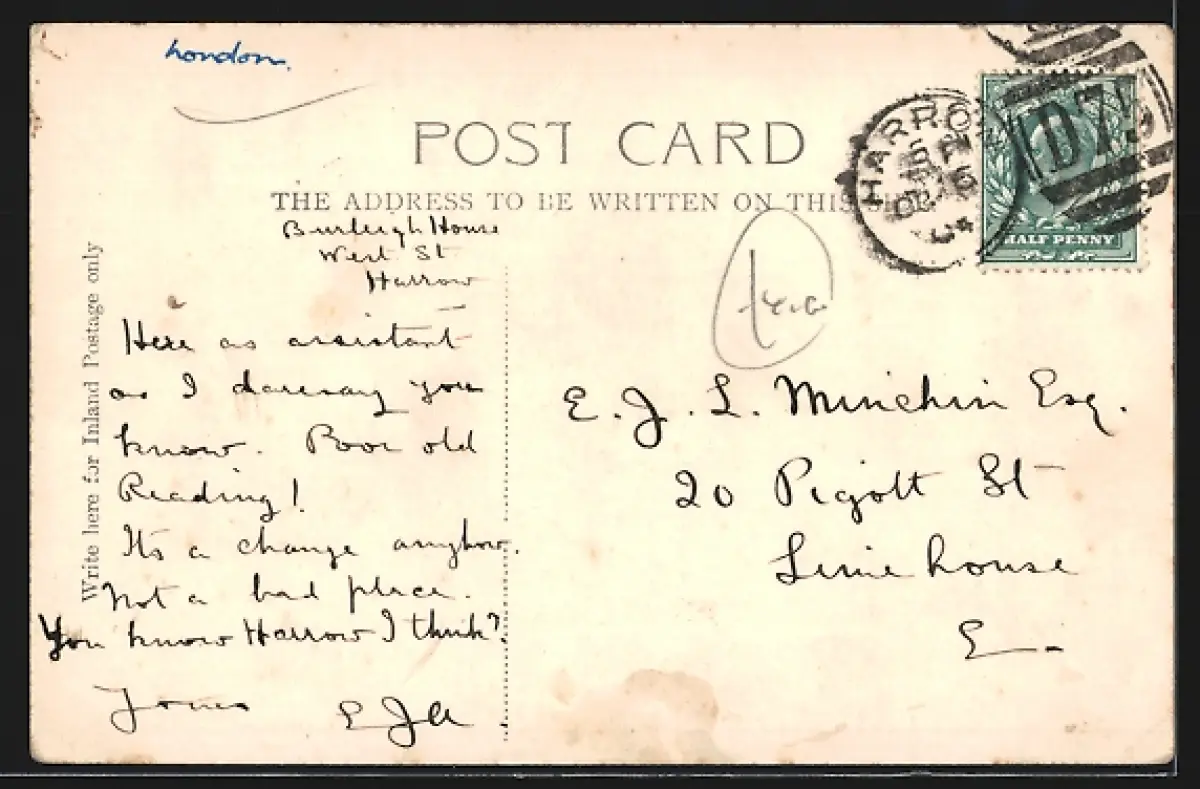 London.
POST CARD
THE ADDRESS TO BE WRITTEN ON THIS SIDE
HARRO
OC 16
04
D7
HALF PENNY
Burleigh House
West St
Harrow
Write here for Inland Postage only
Here as assistant
as I daresay you
know. Poor old
Reading!
Its a change anyhow.
Not a bad place.
You know Harrow I think?
E. J. L. Minchin Esq.
20 Pigott St
Limehouse
E